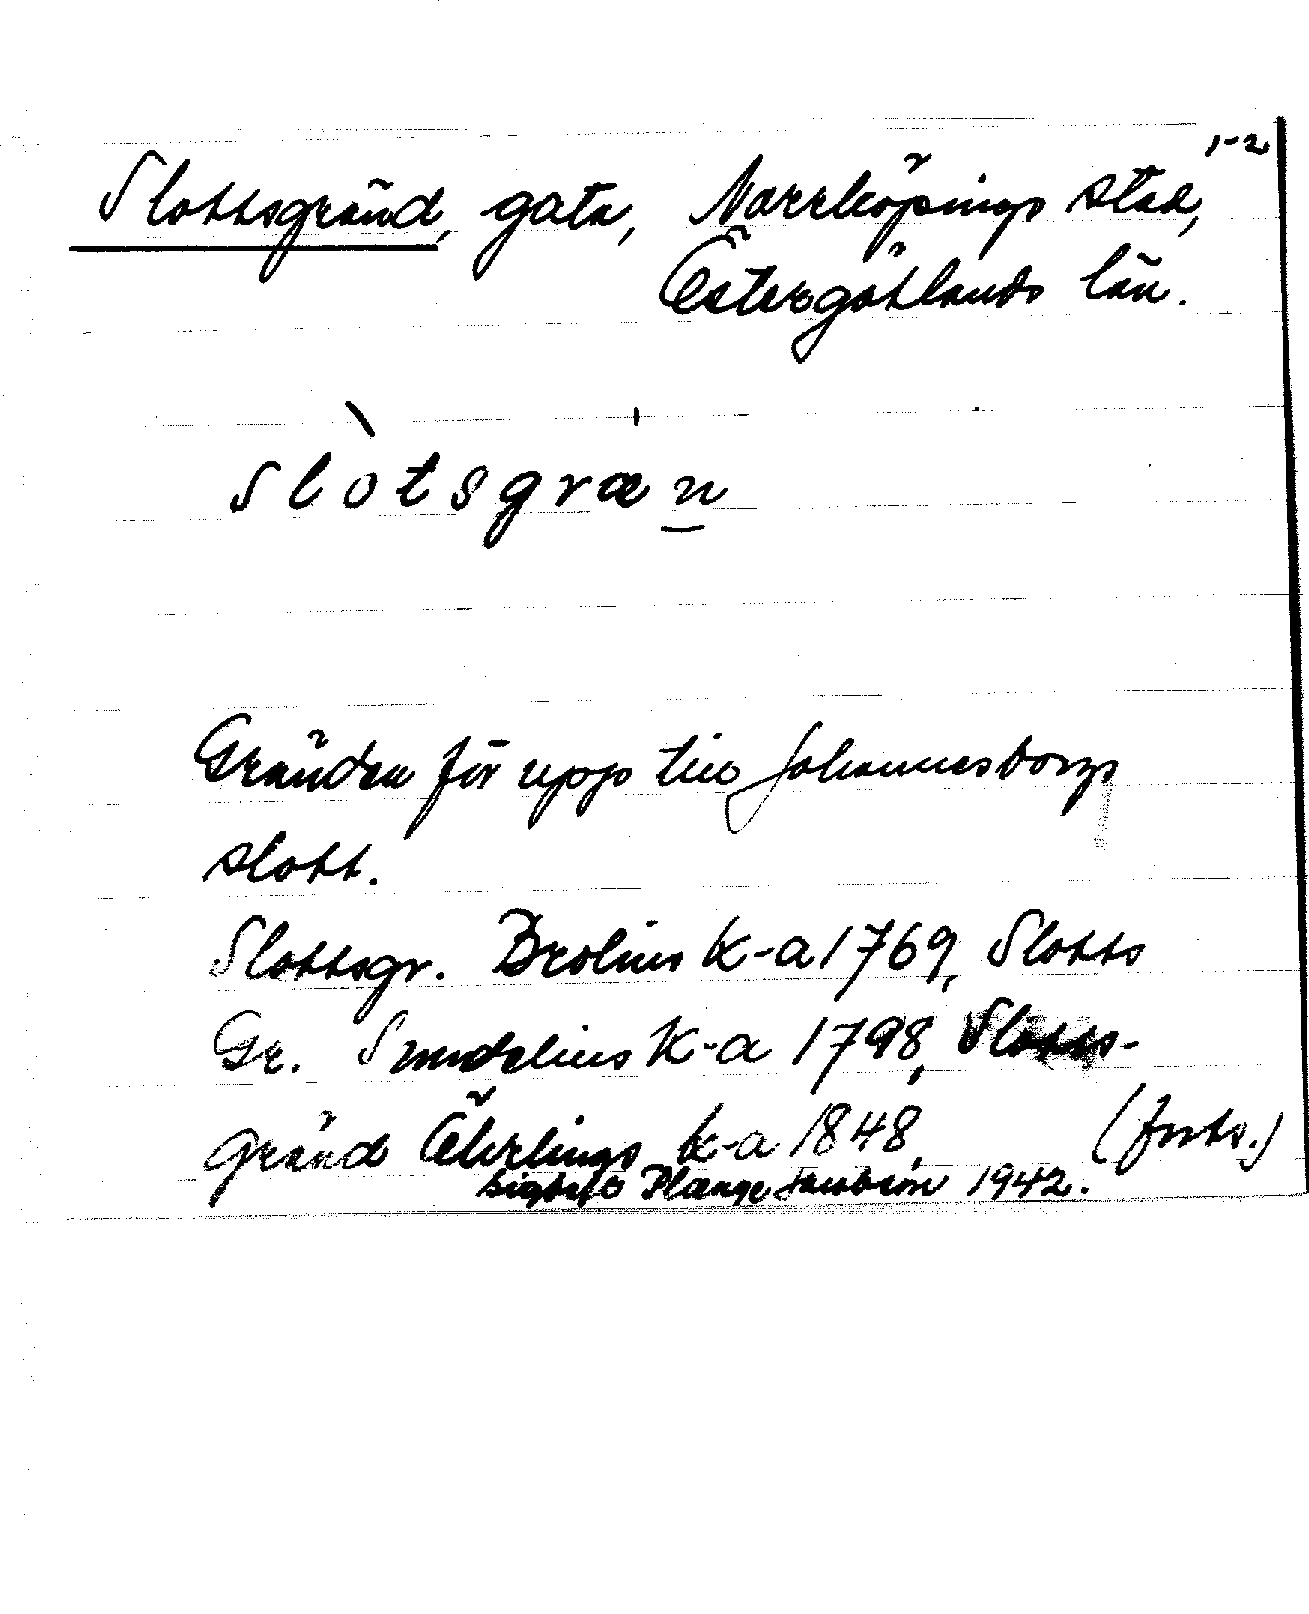 1-2
Slottsgränd, gata, Norrköpings stad,
Östergötlands län.
slòtsgræn
Gränden för upp till Johannesborgs
slott.
Slottsgr. Brolins K-a 1769, Slotts
Gr. Sundelius K-a 1798, Slotts-
gränd Öhrlings k-a 1848, (forts.)
Sigbrit Plænge Jacobson 1942.